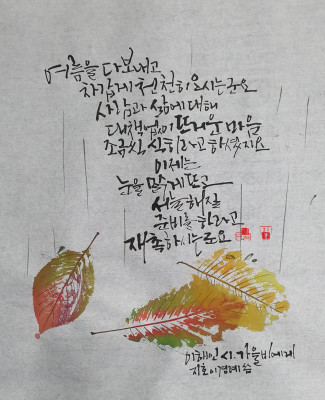 여름을 다 보내고
차갑게 천천히 오시는군요
사람과 삶에 대해
대책없이 뜨거운 마음
조금씩 식히라고 하셨지요
이제는
눈을 맑게 뜨고
서늘해질
준비를 하라고
재촉하시는군요
이해인 시. 가을비에게